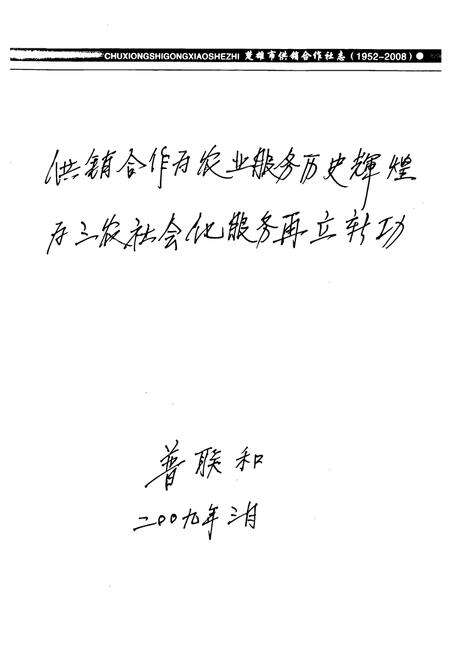 CHUXIONGSHIGONGXIAOSHEZHI 楚雄市供销合作社志(1952-2008)
供销合作为农业服务历史輝煌
为三农社会化服务再立新功
普联和
二00九年三月